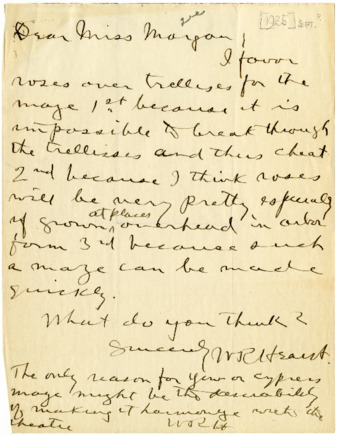 [1925] Sept?
Dear Miss Morgan,
I favor
roses over trellises for the
maze 1st because it is
impossible to break through
the trellisses and thus cheat
2nd because I think roses
will be very pretty especially
if grown at places overhead in arbor
form 3rd because such
a maze can be made
quickly.
What do you think?
Sincerely WR Hearst.
The only reason for yew or cypress
maze might be the desirability
of making it harmonize with the
theatre WRH